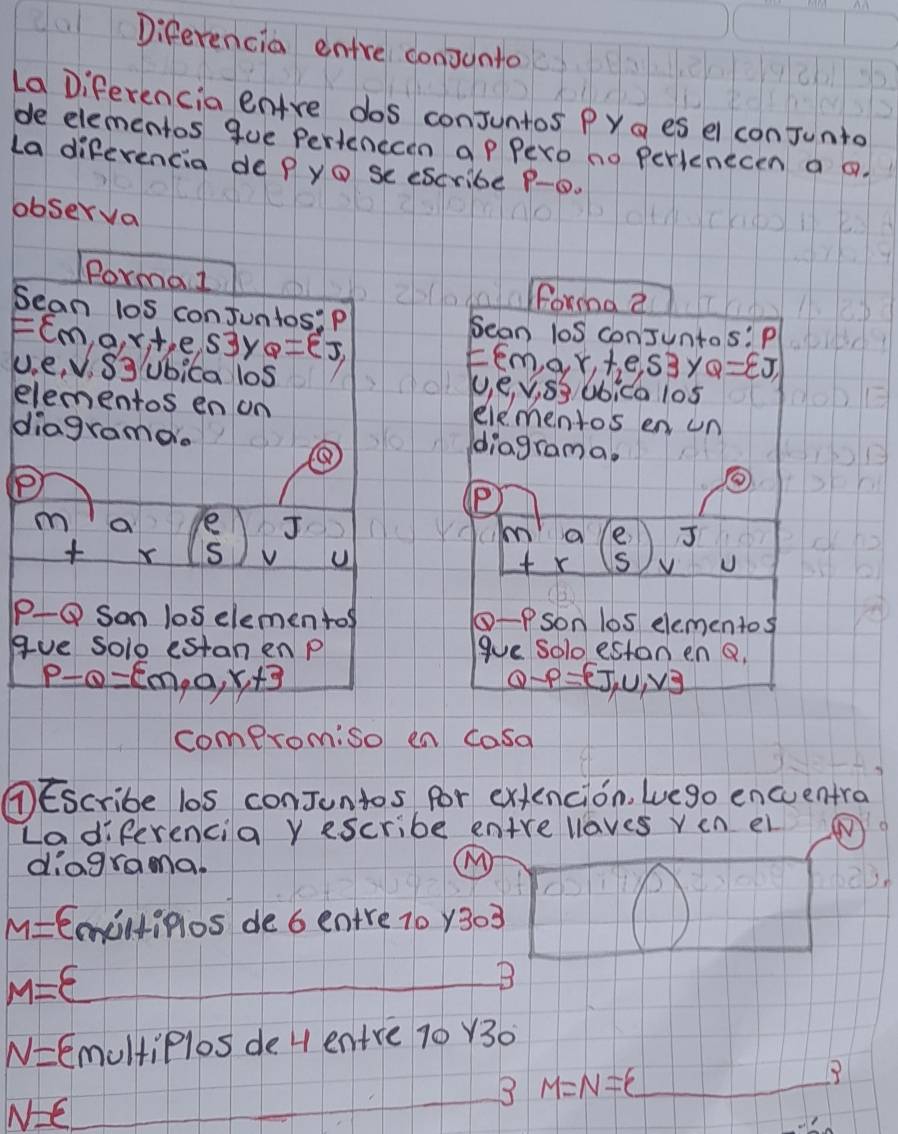 Diferencia entre conjunto
La Diferencia entre dos conjuntos P y Q es el conjunto
de elementos que Pertenecen a P Pero no Pertenecen a Q.
La diferencia de P y Q se escribe P-Q.
observa
Forma 1
Sean los conjuntos: P
={m, a, r, t, e, s} y Q={J,
u, e, v, s} ubica los
elementos en un
diagrama.
P
Q
m a e J
t r s v u
P-Q son los elementos
que solo estan en P
P-Q={m, a, r, t}
Forma 2
Sean los conjuntos: P
={m, a, r, t, e, s} y Q={J,
u, e, v, s} ubica los
elementos en un
diagrama.
P
Q
m a e J
t r s v u
Q-P son los elementos
que solo estan en Q.
Q-P={J, U, V}
compromiso en casa
① Escribe los conjuntos Por extención. Luego encuentra
La diferencia y escribe entre llaves y en el
diagrama.
M
N
M={múltiplos de 6 entre 10 y 30}
M={____}
N={multiplos de 4 entre 10 y 30
N={____}
M=N={____}